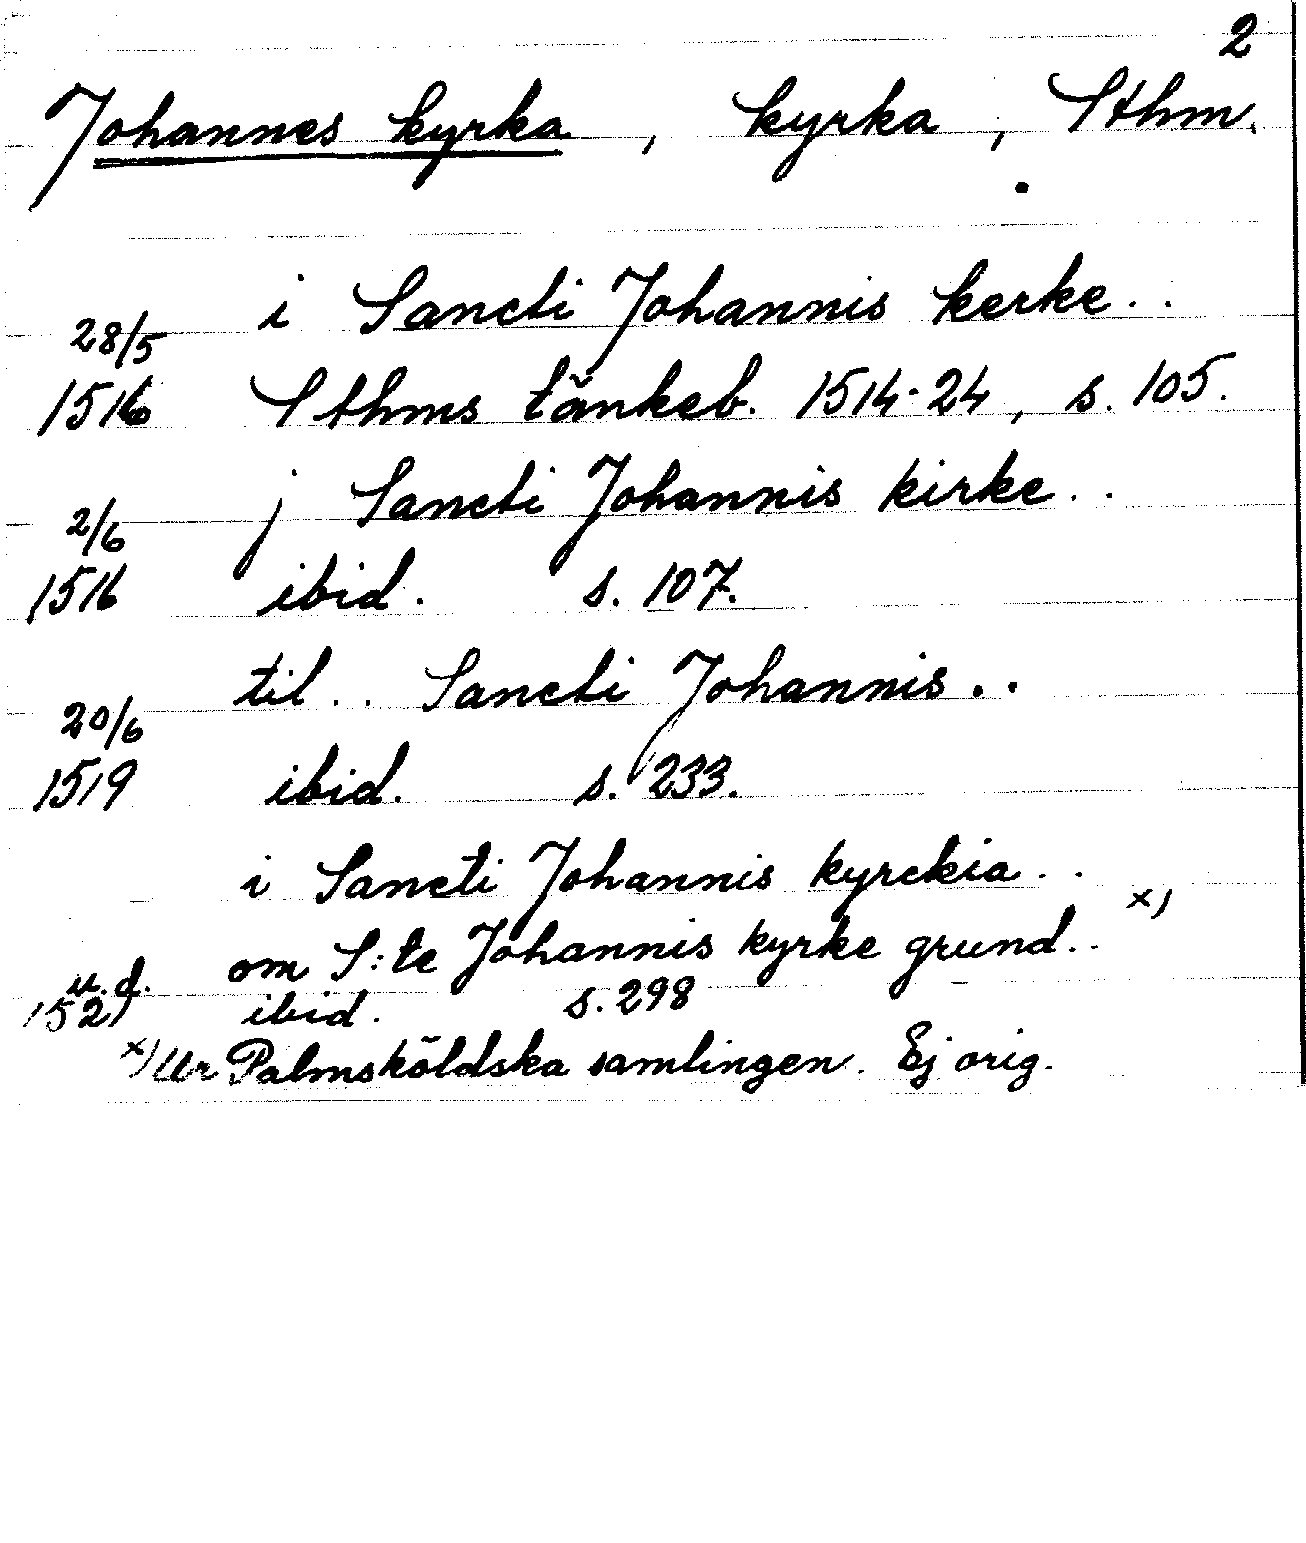 2
Johannes kyrka, kyrka, Sthm.
i Sancti Johannis kerke..
28/5
1516 Sthms tänkeb. 1514-24, s. 105.
j Sancti Johannis kirke..
2/6
1516 ibid. s. 107.
til.. Sancti Johannis..
20/6
1519 ibid. s. 233.
i Sancti Johannis kyrckia..
x)
om S:te Johannis kyrke grund..
u.d.
1521 ibid. s. 298
x) Ur Palmsköldska samlingen. Ej orig.